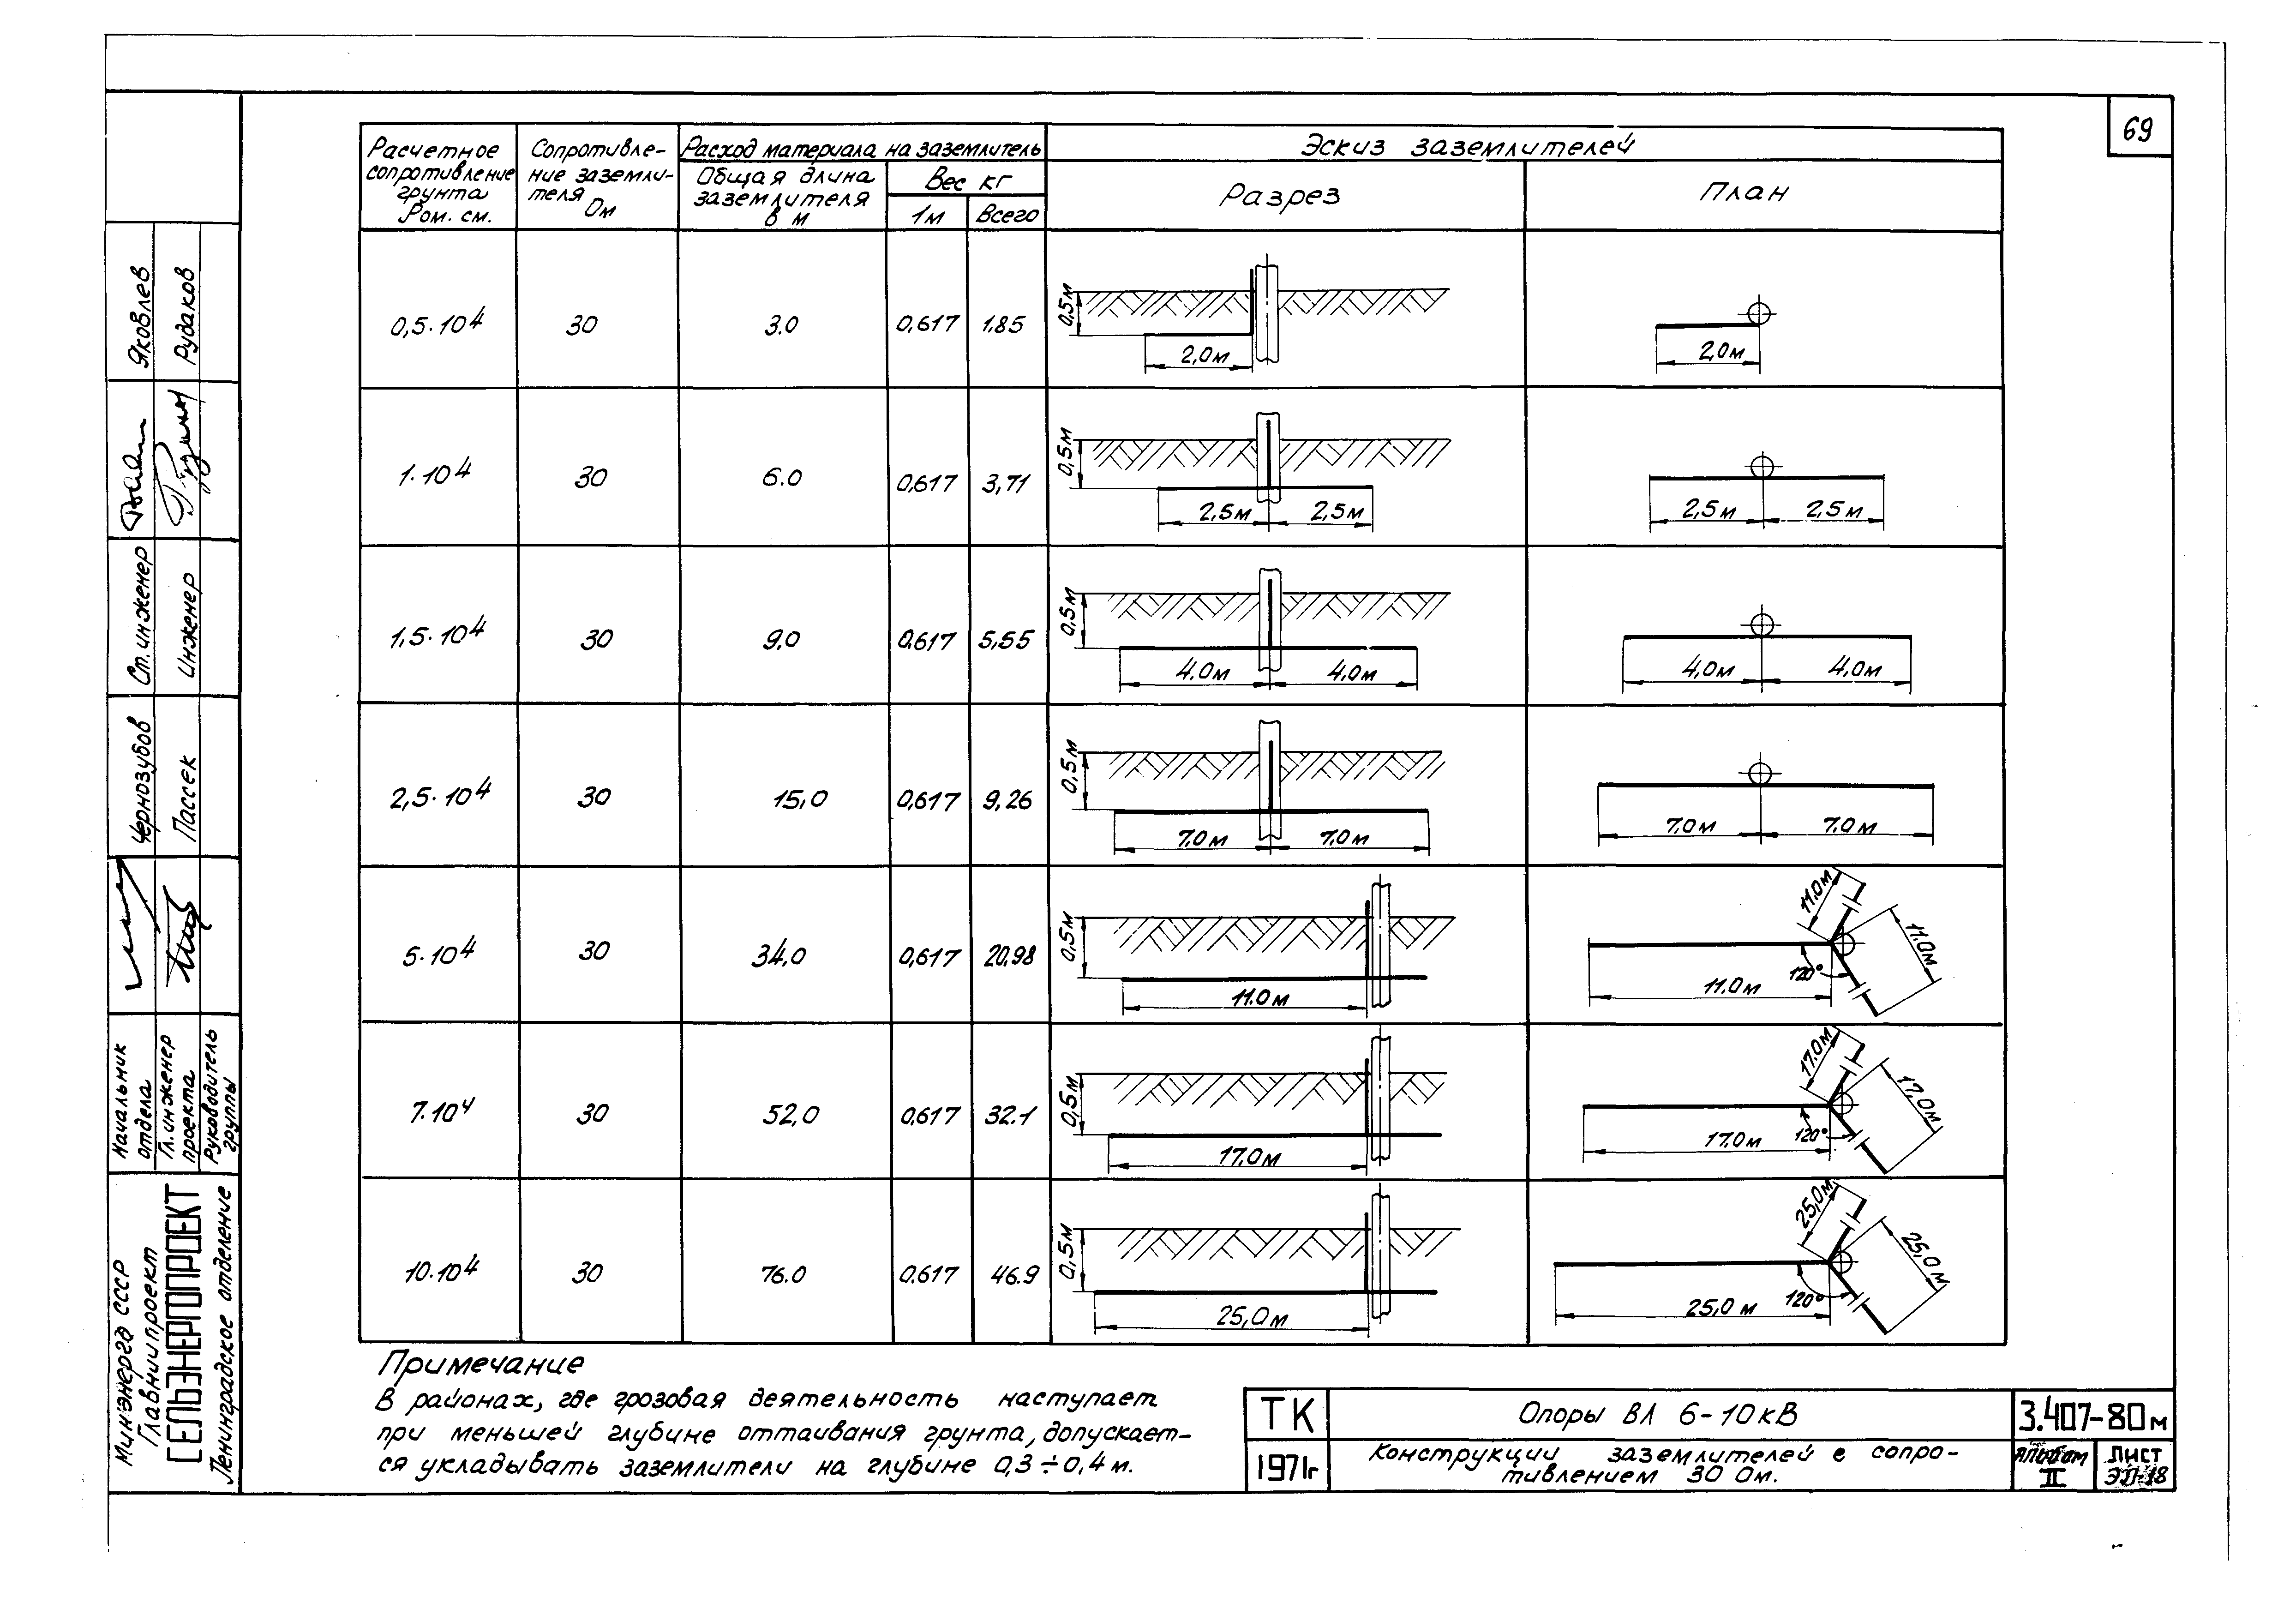 69
Расчетное
сопротивление
грунта
Ром. см.
Сопротивле-
ние заземли-
теля
Ом
Расход материала на заземлитель
Общая длина
заземлителя
в м
Вес кг
1м
Всего
Эскиз заземлителей
Разрез
План
0,5·10⁴
30
3.0
0,617
1.85
0,5м
2,0м
2,0м
1·10⁴
30
6.0
0,617
3,71
0,5м
2,5м
2,5м
2,5м
2,5м
1,5·10⁴
30
9,0
0,617
5,55
0,5м
4,0м
4,0м
4,0м
4,0м
2,5·10⁴
30
15,0
0,617
9,26
0,5м
7.0м
7.0м
7.0м
7.0м
5·10⁴
30
34,0
0,617
20,98
0,5м
11.0м
11.0м
11.0м
11.0м
120°
7·10⁴
30
52,0
0,617
32.1
0,5м
17.0м
17.0м
17.0м
17.0м
120°
10·10⁴
30
76.0
0.617
46.9
0,5м
25,0м
25,0м
25,0м
25,0м
120°
Примечание
В районах, где грозовая деятельность наступает
при меньшей глубине оттаивания грунта, допускает-
ся укладывать заземлители на глубине 0,3÷0,4м.
ТК
1971г
Опоры ВЛ 6-10кВ
Конструкции заземлителей с сопро-
тивлением 30 Ом.
3.407-80м
Альбом
II
Лист
ЭЛ-18
Яковлев
Рудаков
Ст. инженер
Инженер
Чернозубов
Пассек
Начальник
отдела
Гл. инженер
проекта
Руководитель
группы
Минэнерго СССР
Главниипроект
СЕЛЬЭНЕРГОПРОЕКТ
Ленинградское отделение